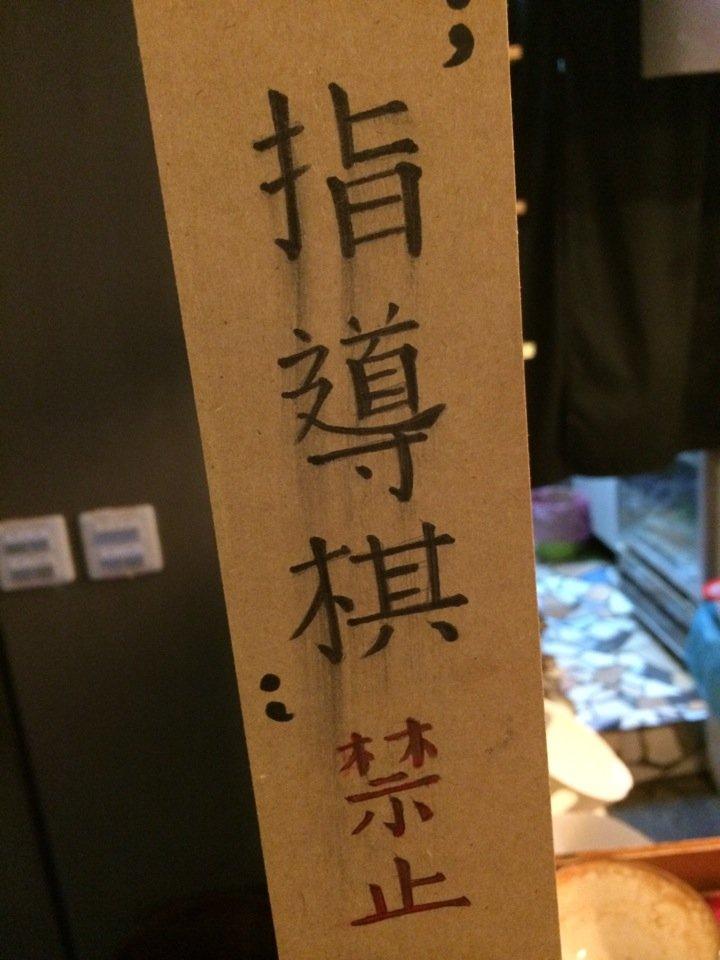 ;指導棋;禁止